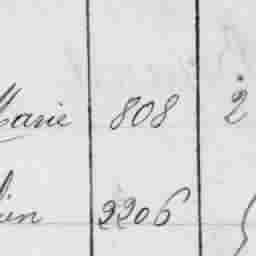 Marie 808 2
lien 2206